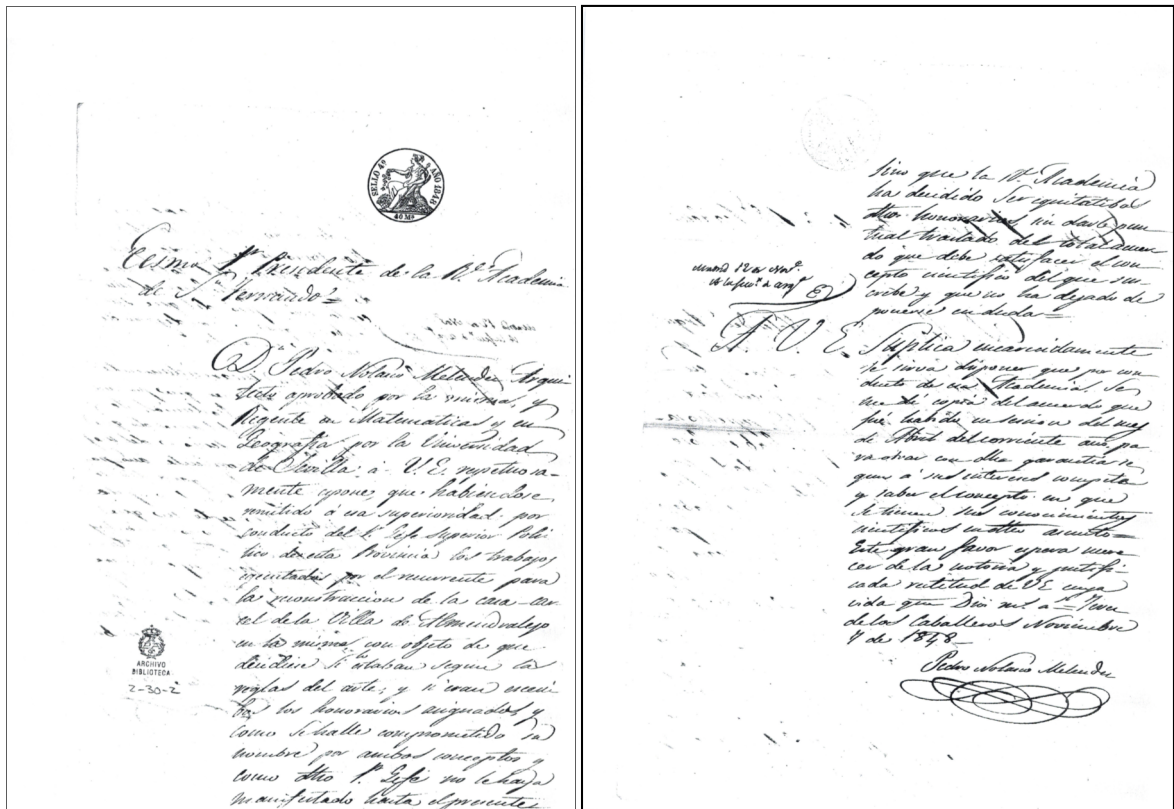 SELLO 4º AÑO 1848
40 Ms
Exmo. Sr. Presidente de la Rl. Academia
de Sn. Fernando=
D. Pedro Nolasco Melendez Arqui
tecto aprobado por la misma, y
Regente en Matematicas y en
Geografia por la Universidad
de Sevilla á V.E. respetuosa-
mente espone, que habiendose
remitido á esa superioridad por
conducto del Sr. Gefe Superior Poli
tico de esta Provincia los trabajos
ejecutados por el recurrente para
la reconstruccion de la casa-car
cel de la Villa de Almendralejo
en la misma, con objeto de que
decidiese si estaban segun las
reglas del arte, y si eran escesi
bos los honorarios asignados, y
como se halle comprometido su
nombre por ambos conceptos y
como dho Sr. Gefe no le haya
manifestado hasta el presente
ARCHIVO
BIBLIOTECA
2-30-2
sino que la Rl. Academia
ha decidido ser equitatibos
dhos honorarios sin darle pun
tual traslado del total acuer
do que debe satisfacer el con
cepto cientifico del que sus
cribe y que no ha dejado de
ponerse en duda=
Madrid 12 de Nove.
A V. E. Suplica encarecidamente
se sirva disponer que por con
ducto de esa Academia, se
me dé copia del acuerdo que
fué habido en sesion del mes
de Abril del corriente año, pa
ra obrar con dha garantia se
gun á sus intereses competa
y saber el concepto en que
se tienen sus conocimientos
cientificos en dho asunto=
Este gran favor espera mere
cer de la notoria y justifi
cada rectitud de VE cuya
vida gue. Dios ms. as.= Jerez
de los Caballeros Noviembre
7 de 1848
Pedro Nolasco Melendez